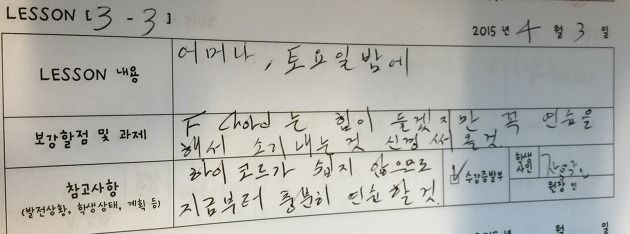 LESSON [3-3]
2015년 4월 3일
LESSON 내용
어머나, 토요일밤에
보강할점 및 과제
F chord는 힘이 들겠지만 꼭 연습을
해서 소리 내는 것 신경써 줄것
참고사항
(발전상황, 학생상태, 계획 등)
하이코드가 쉽지 않으므로
지금부터 충분히 연습할것.
✓ 수강증발부
학생
사인
원장 인
2015년 월 일